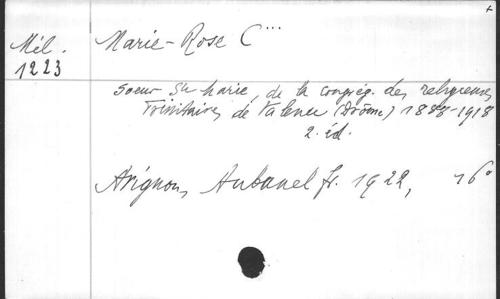 Mél.
1223
Marie-Rose C...
Soeur Ste Marie, de la congrég. des religieuses
Trinitaires de Valence (Drôme) 1888-1918
2. éd.
Avignon, Aubanel fr. 1922, 16°